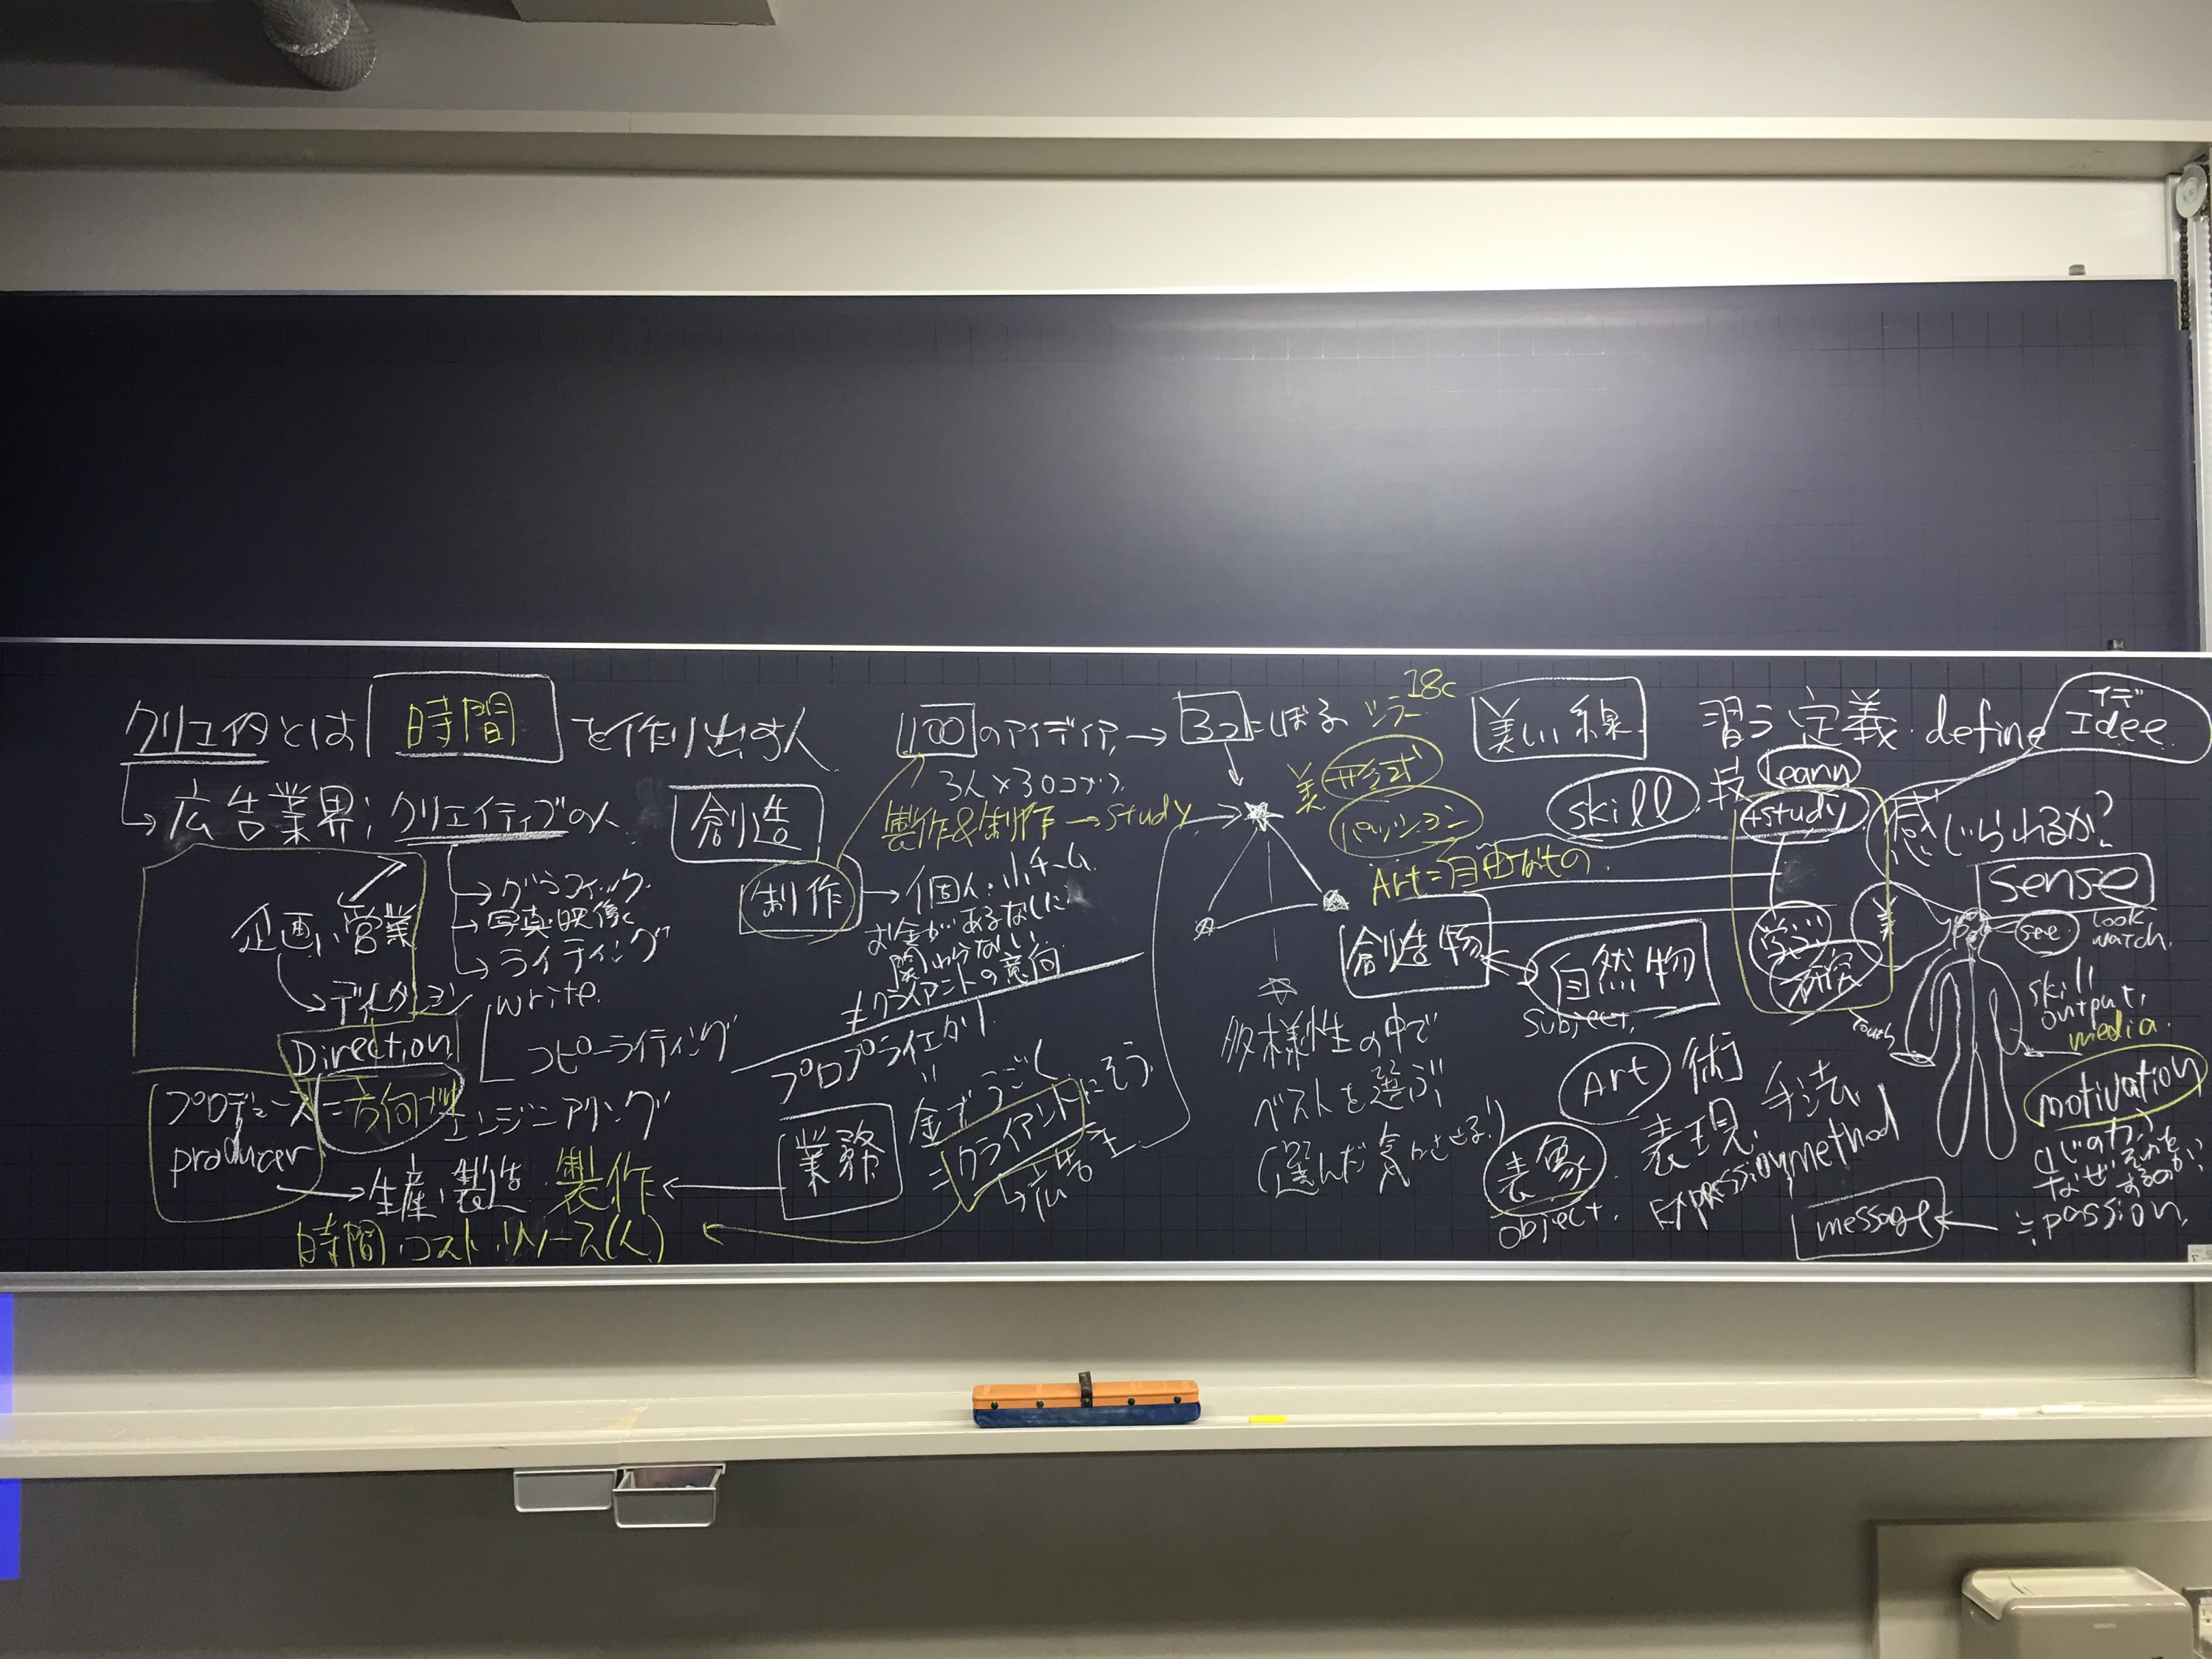 クリエイタとは 時間 を作り出す人
広告業界; クリエイティブの人
企画, 営業
グラフィック
写真・映像
ライティング
write.
コピーライティング
エンジニアリング
ディレクション
Direction
=方向づけ
プロデュース
producer
生産, 製造 製作
時間, コスト, リソース(人)
創造
制作
個人・小チーム
お金があるなしに
関わらない
≠クライアントの意向
プロプライエタリ
業務
金でうごく
=クライアントにそう
→広告主
100のアイディア → 3つにしぼる
3人×30コづつ
製作&制作→study
多様性の中で
ベストを選ぶ
(選んだ気にさせる!)
18c
シラー
美 形式
パッション
Art=自由なもの.
美しい線
創造物
自然物
subject.
skill 技
習う 定義 define
イデ
Idee
learn
+study
学ぶ
研究
美
感じられるか?
sense
see
look
watch.
skill
output,
media.
touch
motivation
なぜそれを
するのか
≒passion.
message
Art 術
表現, 手法
Expression, method
表象
object.